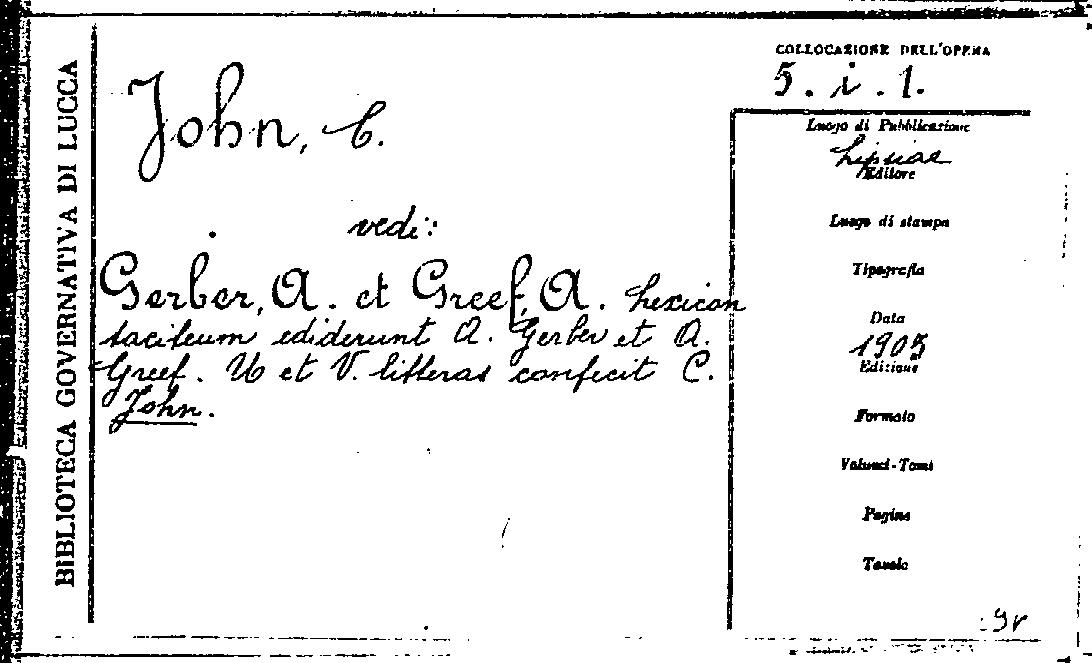 BIBLIOTECA GOVERNATIVA DI LUCCA
John, C.
vedi:
Gerber, A. et Greef, A. Lexicon
taciteum ediderunt A. Gerber et A.
Greef. U et V. litteras conficit C.
John.
COLLOCAZIONE DELL'OPERA
5. i. 1.
Luogo di Pubblicazione
Lipsiae
Editore
Luogo di stampa
Tipografia
Data
1903
Edizione
Formato
Volumi-Tomi
Pagine
Tavole